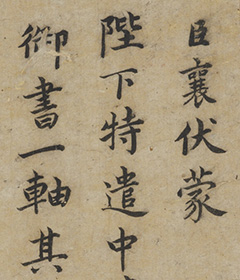 臣襄伏蒙
陛下特遣中
御書一軸其